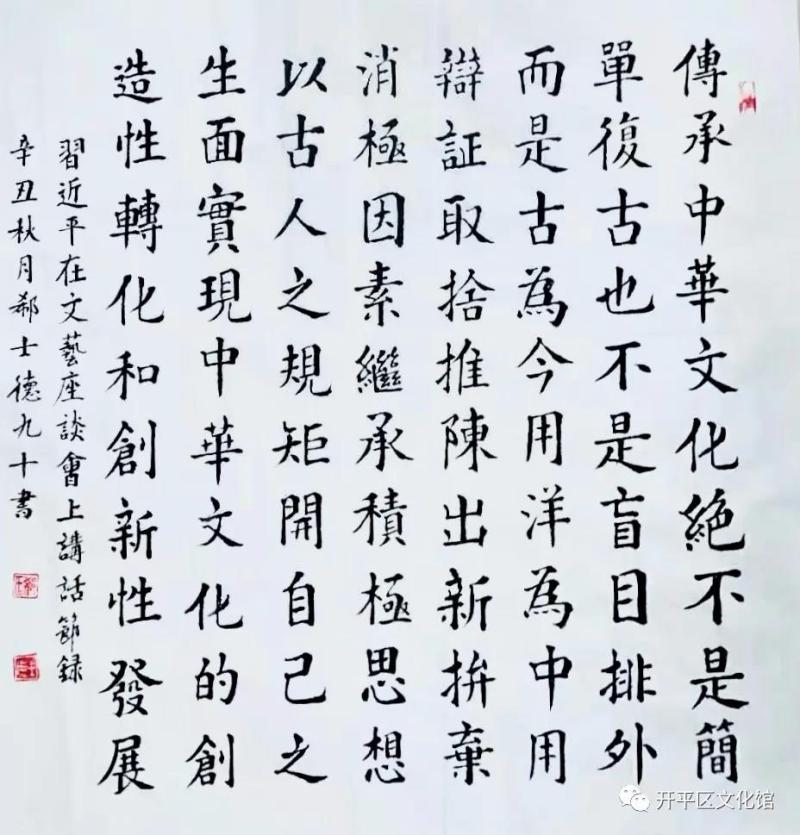 傳承中華文化絶不是簡
單復古也不是盲目排外
而是古為今用洋為中用
辯証取捨推陳出新拚棄
消極因素繼承積極思想
以古人之規矩開自己之
生面實現中華文化的創
造性轉化和創新性發展
習近平在文藝座談會上講話節録
辛丑秋月郝士德九十書
开平区文化馆